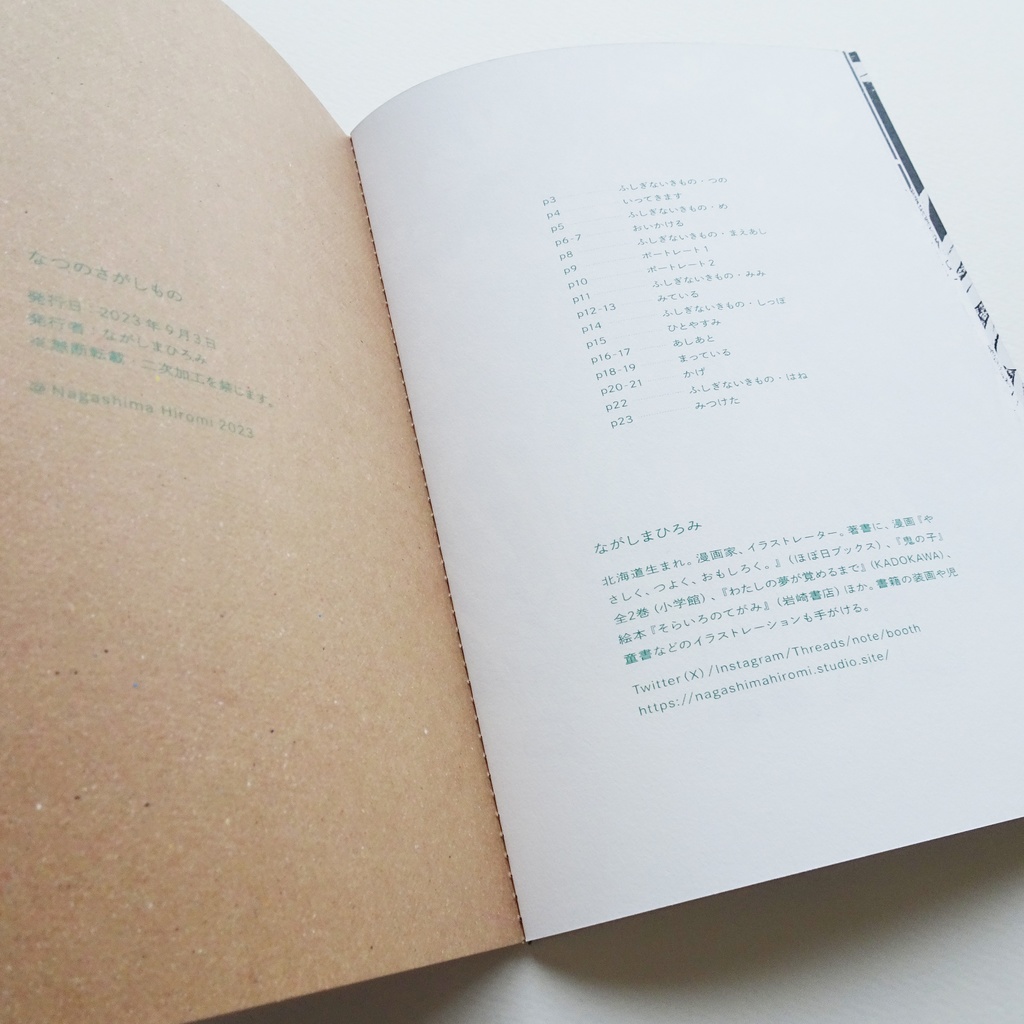 なつのさがしもの
発行日：2023年9月3日
発行者：ながしまひろみ
※無断転載・二次加工を禁じます。
@ Nagashima Hiromi 2023
p3 ふしぎないきもの・つの
p4 いってきます
p5 ふしぎないきもの・め
p6-7 おいかける
p8 ふしぎないきもの・まえあし
p9 ポートレート1
p10 ポートレート2
p11 ふしぎないきもの・みみ
p12-13 みている
p14 ふしぎないきもの・しっぽ
p15 ひとやすみ
p16-17 あしあと
p18-19 まっている
p20-21 かげ
p22 ふしぎないきもの・はね
p23 みつけた
ながしまひろみ
北海道生まれ。漫画家、イラストレーター。著書に、漫画『や
さしく、つよく、おもしろく。』（ほぼ日ブックス）、『鬼の子』
全2巻（小学館）、『わたしの夢が覚めるまで』（KADOKAWA）、
絵本『そらいろのてがみ』（岩崎書店）ほか。書籍の装画や児
童書などのイラストレーションも手がける。
Twitter(X)/Instagram/Threads/note/booth
https://nagashimahiromi.studio.site/